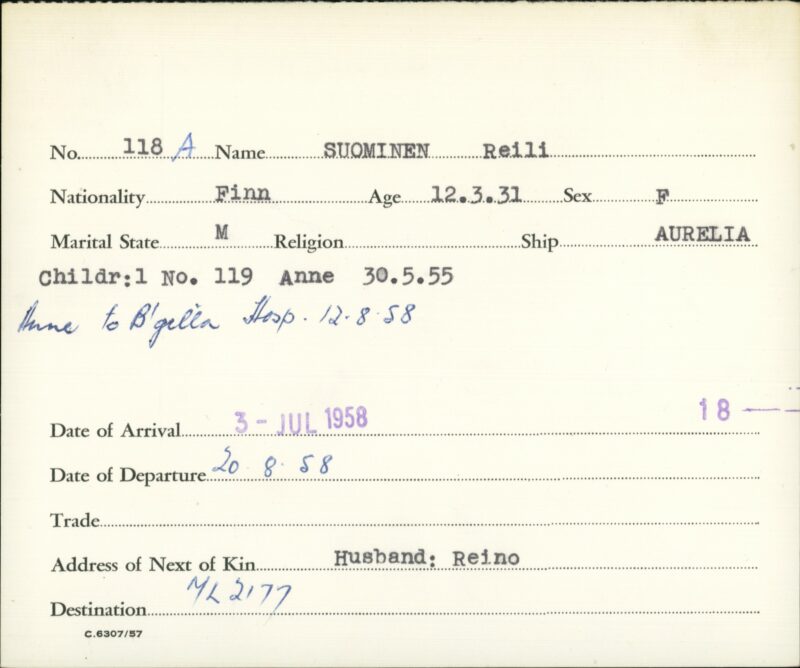 No. 118 A Name SUOMINEN Reili
Nationality Finn Age 12.3.31 Sex F
Marital State M Religion Ship AURELIA
Childr:1 No. 119 Anne 30.5.55
Anne to B'gilla Hosp. 12.8.58
18
Date of Arrival 3 - JUL 1958
Date of Departure 20 8 58
Trade
Address of Next of Kin Husband: Reino
Destination ML 2177
C.6307/57